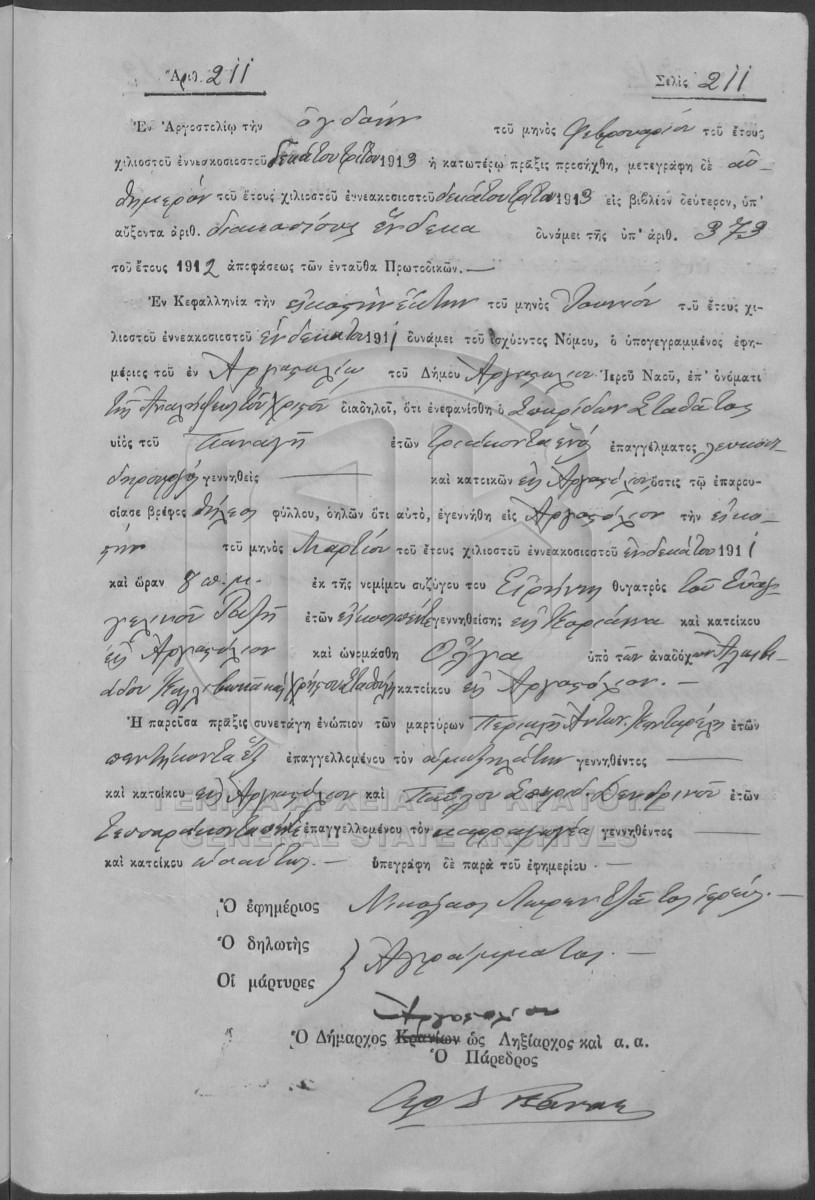 Ἀριθ. 211 Σελὶς 211
Ἐν Ἀργοστολίῳ τὴν ὀγδόην τοῦ μηνὸς Φεβρουαρίου τοῦ ἔτους
χιλιοστοῦ ἐννεακοσιοστοῦ δεκάτου τρίτου 1913 ἡ κατωτέρω πρᾶξις προσήχθη, μετεγράφη δὲ αὐ-
θημερὸν τοῦ ἔτους χιλιοστοῦ ἐννεακοσιοστοῦ δεκάτου τρίτου 1913 εἰς βιβλίον δεύτερον, ὑπ'
αὔξοντα ἀριθ. διακοσίους ἕνδεκα δυνάμει τῆς ὑπ' ἀριθ. 373
τοῦ ἔτους 1912 ἀποφάσεως τῶν ἐνταῦθα Πρωτοδικῶν. —
Ἐν Κεφαλληνίᾳ τὴν εἰκοστὴν ἕκτην τοῦ μηνὸς Ἰουνίου τοῦ ἔτους χι-
λιοστοῦ ἐννεακοσιοστοῦ ἑνδεκάτου 1911 δυνάμει τοῦ ἰσχύοντος Νόμου, ὁ ὑπογεγραμμένος ἐφη-
μέριος τοῦ ἐν Ἀργοστολίῳ τοῦ Δήμου Ἀργοστολίου Ἱεροῦ Ναοῦ, ἐπ' ὀνόματι
τῆς Ἀναλήψεως τοῦ Χριστοῦ διαδηλοῖ, ὅτι ἐνεφανίσθη ὁ Σπυρίδων Σταθάτος
υἱὸς τοῦ Παναγῆ ἐτῶν τριάκοντα ἑνὸς ἐπαγγέλματος λευκοσι-
δηρουργὸς γεννηθεὶς — καὶ κατοικῶν εἰς Ἀργοστόλιον ὅστις τῷ ἐπαρου-
σίασε βρέφος θήλεος φύλλου, δηλῶν ὅτι αὐτὸ, ἐγεννήθη εἰς Ἀργοστόλιον τὴν εἰκο-
στὴν τοῦ μηνὸς Μαρτίου τοῦ ἔτους χιλιοστοῦ ἐννεακοσιοστοῦ ἑνδεκάτου 1911
καὶ ὥραν 8 π.μ. ἐκ τῆς νομίμου συζύγου του Εἰρήνης θυγατρὸς τοῦ Εὐαγ-
γελινοῦ ἐτῶν εἰκοσιπέντε γεννηθείσης εἰς καὶ κατοίκου
εἰς Ἀργοστόλιον καὶ ὠνομάσθη Ὄλγα ὑπὸ τῶν ἀναδόχων
κατοίκου εἰς Ἀργοστόλιον. —
Ἡ παροῦσα πρᾶξις συνετάγη ἐνώπιον τῶν μαρτύρων Περικλῆ Ἀντων. ἐτῶν
πεντήκοντα ἓξ ἐπαγγελλομένου τὸν ἁμαξηλάτην γεννηθέντος —
καὶ κατοίκου εἰς Ἀργοστόλιον καὶ Παύλου Σπυρίδ. Δενδρινοῦ ἐτῶν
τεσσαράκοντα πέντε ἐπαγγελλομένου τὸν καρραγωγέα γεννηθέντος —
καὶ κατοίκου ὡσαύτως. — ὑπεγράφη δὲ παρὰ τοῦ ἐφημερίου. —
ΓΕΝΙΚΑ ΑΡΧΕΙΑ ΤΟΥ ΚΡΑΤΟΥΣ
GENERAL STATE ARCHIVES
Ὁ ἐφημέριος Νικόλαος ἱερεύς. —
Ὁ δηλωτὴς
Οἱ μάρτυρες } Ἀγράμματοι. —
Ὁ Δήμαρχος Κρανίων ὡς Ληξίαρχος καὶ α. α.
Ὁ Πάρεδρος